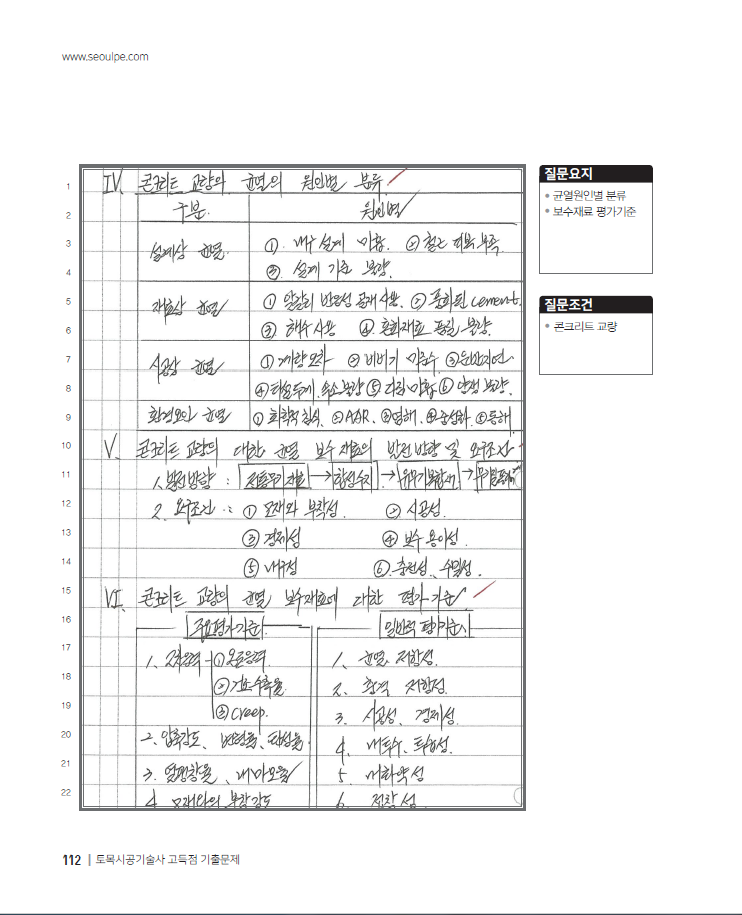 www.seoulpe.com
1 IV. 콘크리트 교량의 균열의 원인별 분류
2 구분 원인별
3 설계상 균열 ① 내구설계 미흡 ② 철근 피복 부족
4 ③ 설계 기준 불량.
5 재료상 균열 ① 알칼리 반응성 골재 사용. ② 풍화된 cement.
6 ③ 해수사용 ④ 혼화재료 품질 불량.
7 시공상 균열 ① 계량오차 ② 비비기 미준수 ③ 운반지연
8 ④ 타설두께, 속도불량 ⑤ 다짐 미흡 ⑥ 양생 불량.
9 환경요인 균열 ① 화학적침식, ② AAR, ③ 염해, ④ 중성화, ⑤ 동해.
10 V. 콘크리트 교량의 대한 균열 보수 재료의 발전방향 및 요구조건
11 1. 발전방향 : → 합성수지 →
12 2. 요구조건 : ① 모재와 부착성. ② 시공성.
13 ③ 경제성 ④ 보수 용이성.
14 ⑤ 내구성 ⑥ 충전성, 수밀성.
15 VI. 콘크리트 교량의 균열 보수재료에 대한 평가기준
16 주요평가기준 일반적 평가기준
17 1. 2차응력 ① 온도응력 1. 균열 저항성.
18 ② 건조수축율 2. 충격 저항성.
19 ③ creep. 3. 시공성, 경제성.
20 2. 압축강도, 변형율, 탄성율. 4. 내투수, 투습성.
21 3. 열팽창율, 내마모율 5. 내화학성
22 4. 모재와의 부착강도 6. 접착성.
질문요지
• 균열원인별 분류
• 보수재료 평가기준
질문조건
• 콘크리트 교량
112 | 토목시공기술사 고득점 기출문제